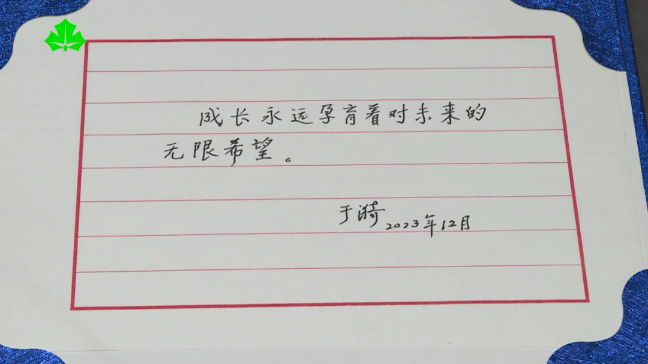 成长永远孕育着对未来的
无限希望。
于漪 2023年12月